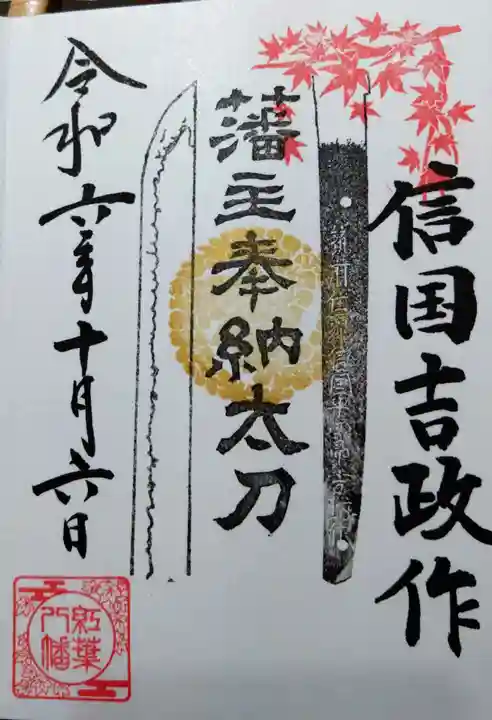 信国吉政作
藩主奉納太刀
令和六年十月六日
紅葉
八幡